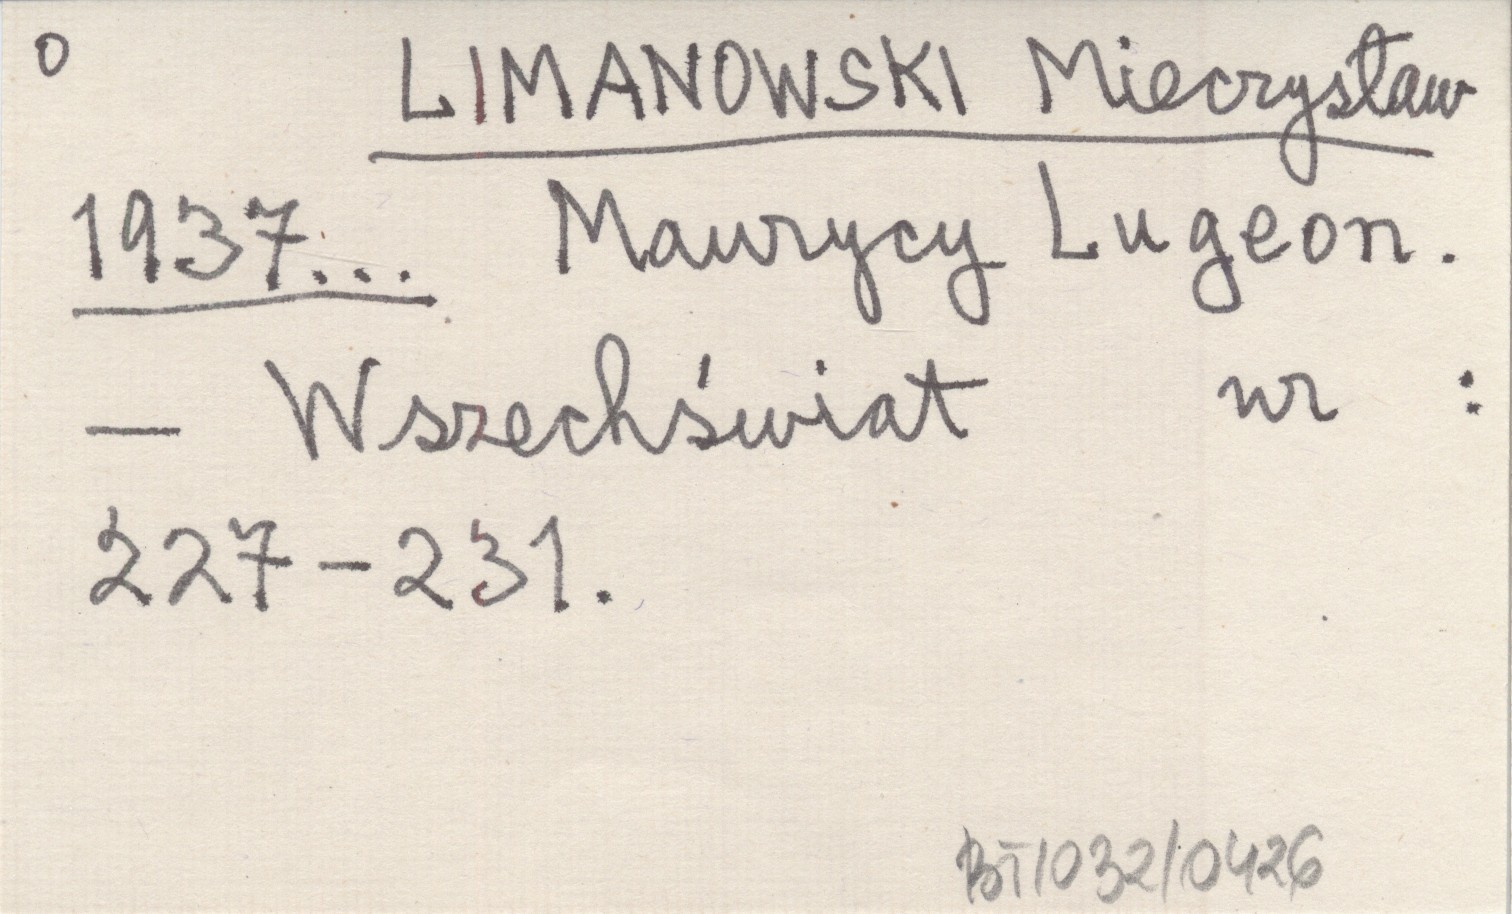 O LIMANOWSKI Mieczysław
1937... Maurycy Lugeon.
— Wszechświat nr :
227-231.
BT/032/0426